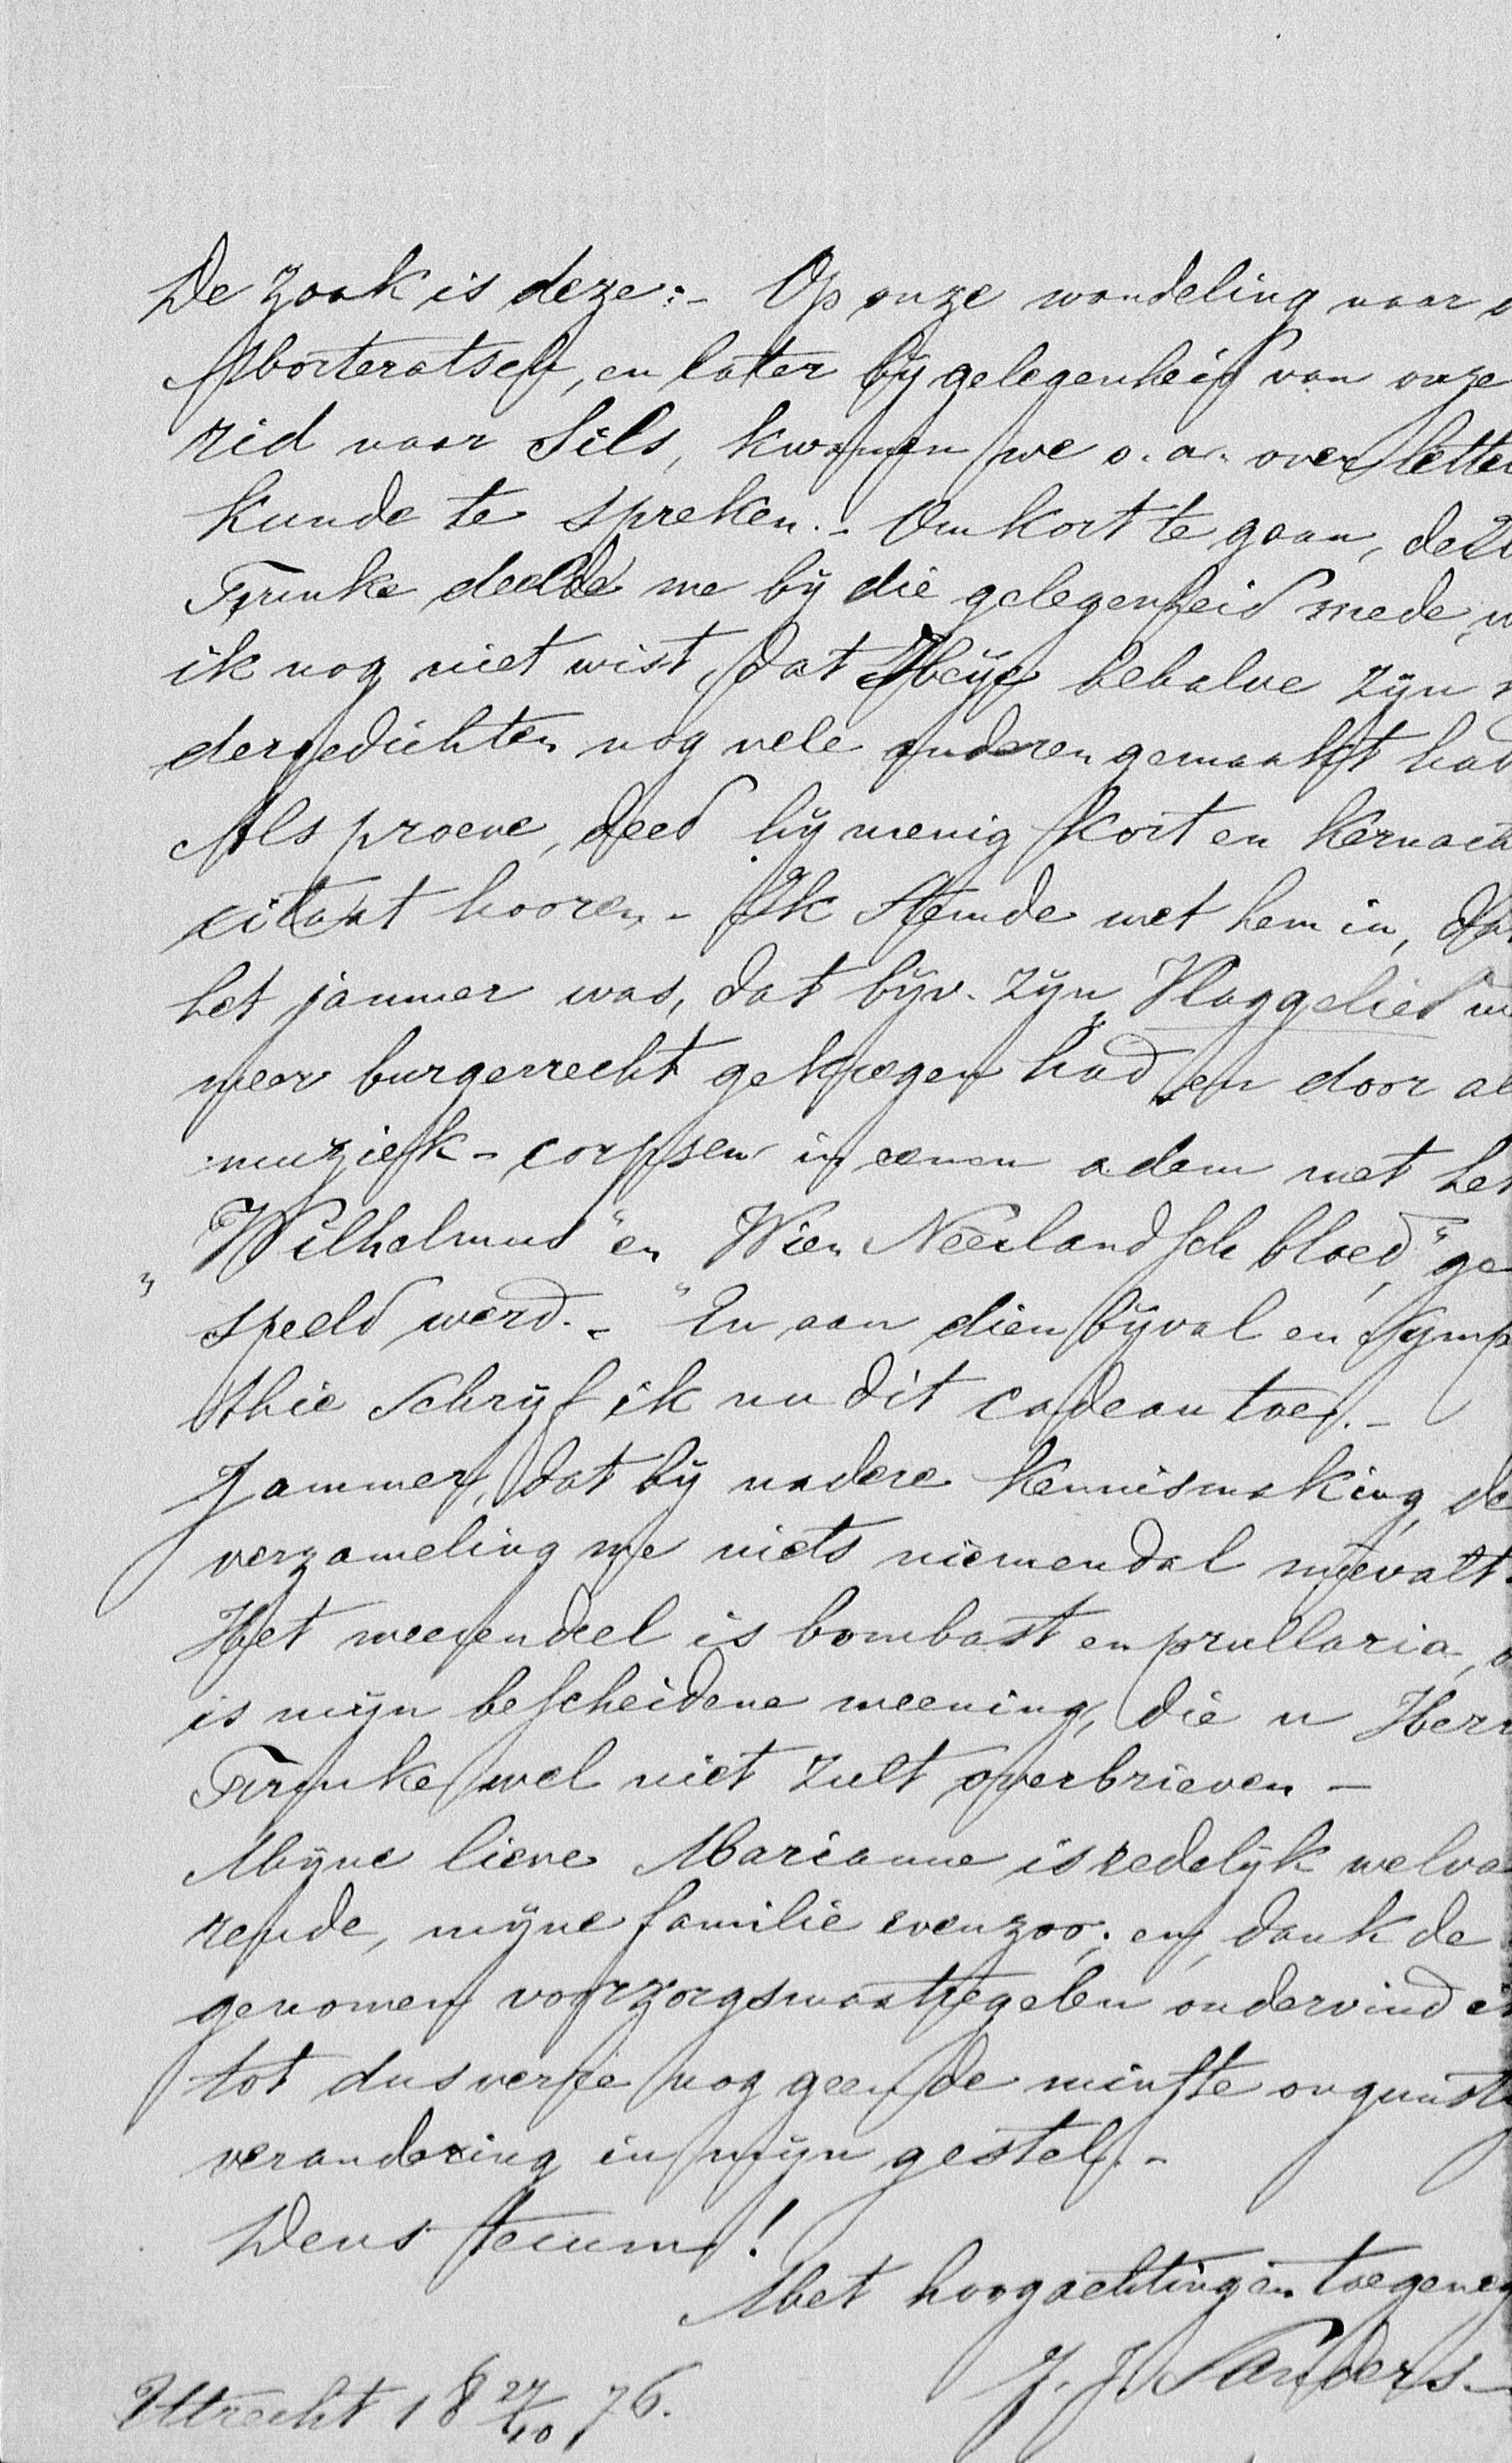 De zaak is deze:- Op onze wandeling naar
Morteratsch, en later bij gelegenheid van onze
rid naar Sils, kwamen we o.a. over letter
kunde te spreken.- Om kort te gaan, de
Francke deelde me bij die gelegenheid mede,
ik nog niet wist, dat Heije behalve zijn
dergedichten nog vele anderen gemaakt had
Als proeve, deed hij menig kort en kernach
citaat hooren.- Ik stemde met hem in, dat
het jammer was, dat bijv. zijn „Vlaggelied
meer burgerrecht gekregen had en door al
muziek-corpsen in eenen adem met het
„Wilhelmus" en „Wien Neêrlandsch bloed," ge
speeld werd.- En aan dien bijval en symp
thie schrijf ik nu dit cadeau toe.-
Jammer, dat bij nadere kennismaking, de
verzameling me niets niemendal meevalt.
Het meerendeel is bombast en prullaria,
is mijn bescheidene meening, die u Herr
Francke wel niet zult overbrieven -
Mijne lieve Marianne is redelijk welva
rende, mijne familie evenzoo; en, dank de
genomen voorzorgsmaatregelen ondervind
tot dusverre nog geen de minste ongunst
verandering in mijn gestel.-
Deus tecum!
Met hoogachting en toegeneg
J. J. Sanders.-
Uttrecht 18 27/10 76.